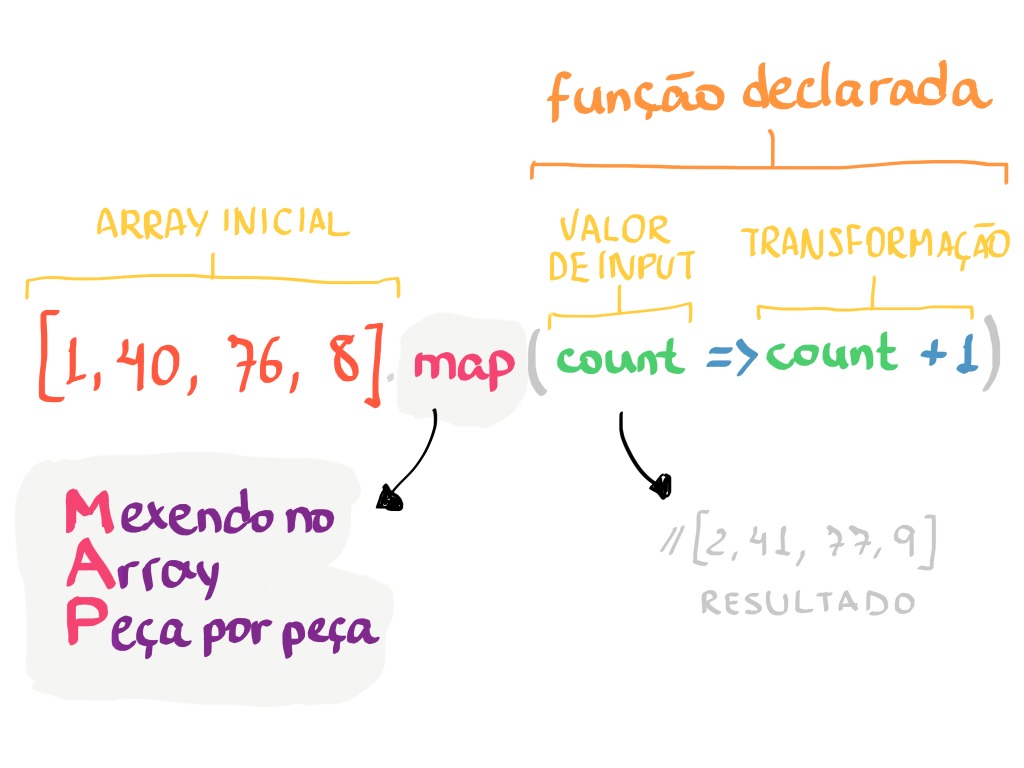 função declarada
ARRAY INICIAL
VALOR
DE INPUT
TRANSFORMAÇÃO
[1, 40, 76, 8].map(count => count +1)
Mexendo no
Array
Peça por peça
//[2, 41, 77, 9]
RESULTADO